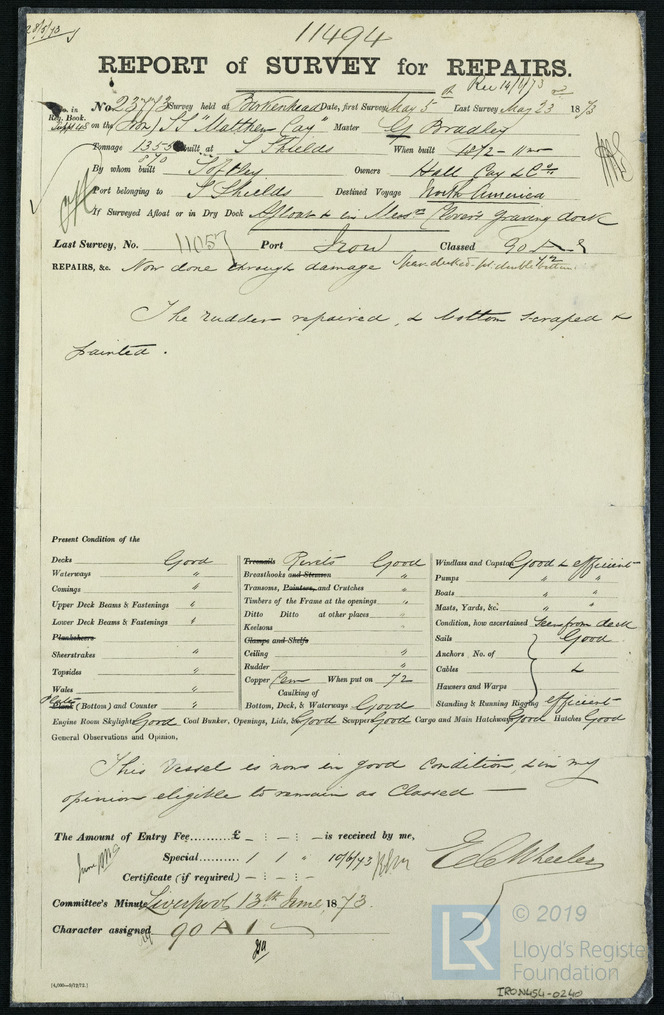 28/5/73
11494
REPORT of SURVEY for REPAIRS.
Rec 14/6/73
No. in Reg. Book. Supp 48
No. 23773 Survey held at Birkenhead Date, first Survey May 5 Last Survey May 23 1873
on the Iron SS "Matthew Cay" Master G Bradley
Tonnage 1355 Built at S Shields When built 1872 - 11mo
870
By whom built Softley Owners Hall Cay & Co
Port belonging to S Shields Destined Voyage North America
If Surveyed Afloat or in Dry Dock Afloat & in Messrs Clover's graving dock
Last Survey, No. 11057 Port Iron Classed 90 A
REPAIRS, &c. Now done through damage Spar decked
The rudder repaired, & bottom scraped &
painted.
Present Condition of the
Decks Good
Waterways "
Comings "
Upper Deck Beams & Fastenings "
Lower Deck Beams & Fastenings "
Planksheers
Sheerstrakes "
Topsides "
Wales "
Plates Plank (Bottom) and Counter "
Treenails Rivets Good
Breasthooks and Stemson "
Transoms, Pointers, and Crutches "
Timbers of the Frame at the openings "
Ditto Ditto at other places "
Keelsons "
Clamps and Shelfs
Ceiling "
Rudder "
Copper Cem When put on 72
Caulking of
Bottom, Deck, & Waterways Good
Windlass and Capstan Good & efficient
Pumps " "
Boats " "
Masts, Yards, &c. " "
Condition, how ascertained Seen from deck
Sails Good
Anchors No. of
Cables &
Hawsers and Warps
Standing & Running Rigging efficient
Engine Room Skylights Good Coal Bunker, Openings, Lids, &c Good Scuppers Good Cargo and Main Hatchways Good Hatches Good
General Observations and Opinion,
This Vessel is now in good condition, & in my
opinion eligible to remain as Classed —
The Amount of Entry Fee..........£ - : - : - is received by me,
Special.......... 1 1 " 10/6/73
Certificate (if required) - : - : -
E C Wheeler
Committee's Minute Liverpool 13th June 1873.
Character assigned 90 A 1
[4,000—9/12/72.]
LR © 2019
Lloyd's Register
Foundation
IRON454-0240